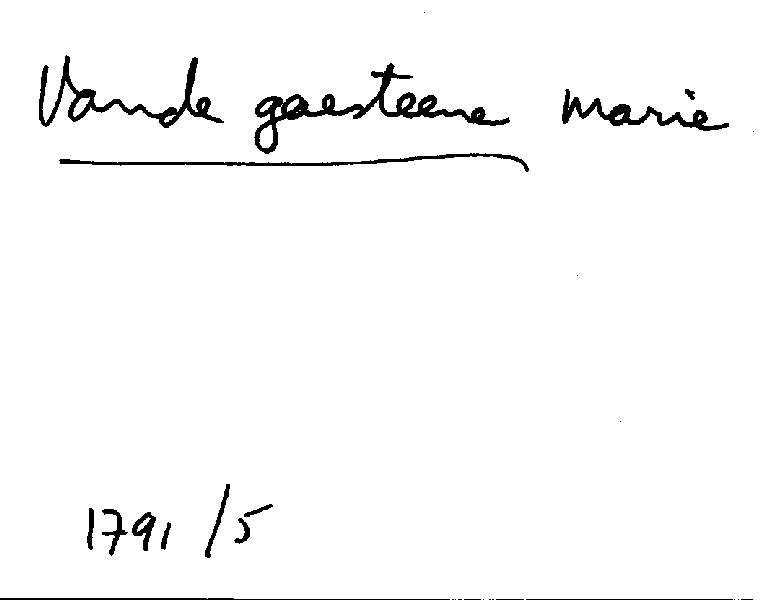 Vande gaesteene Marie
1791 /5